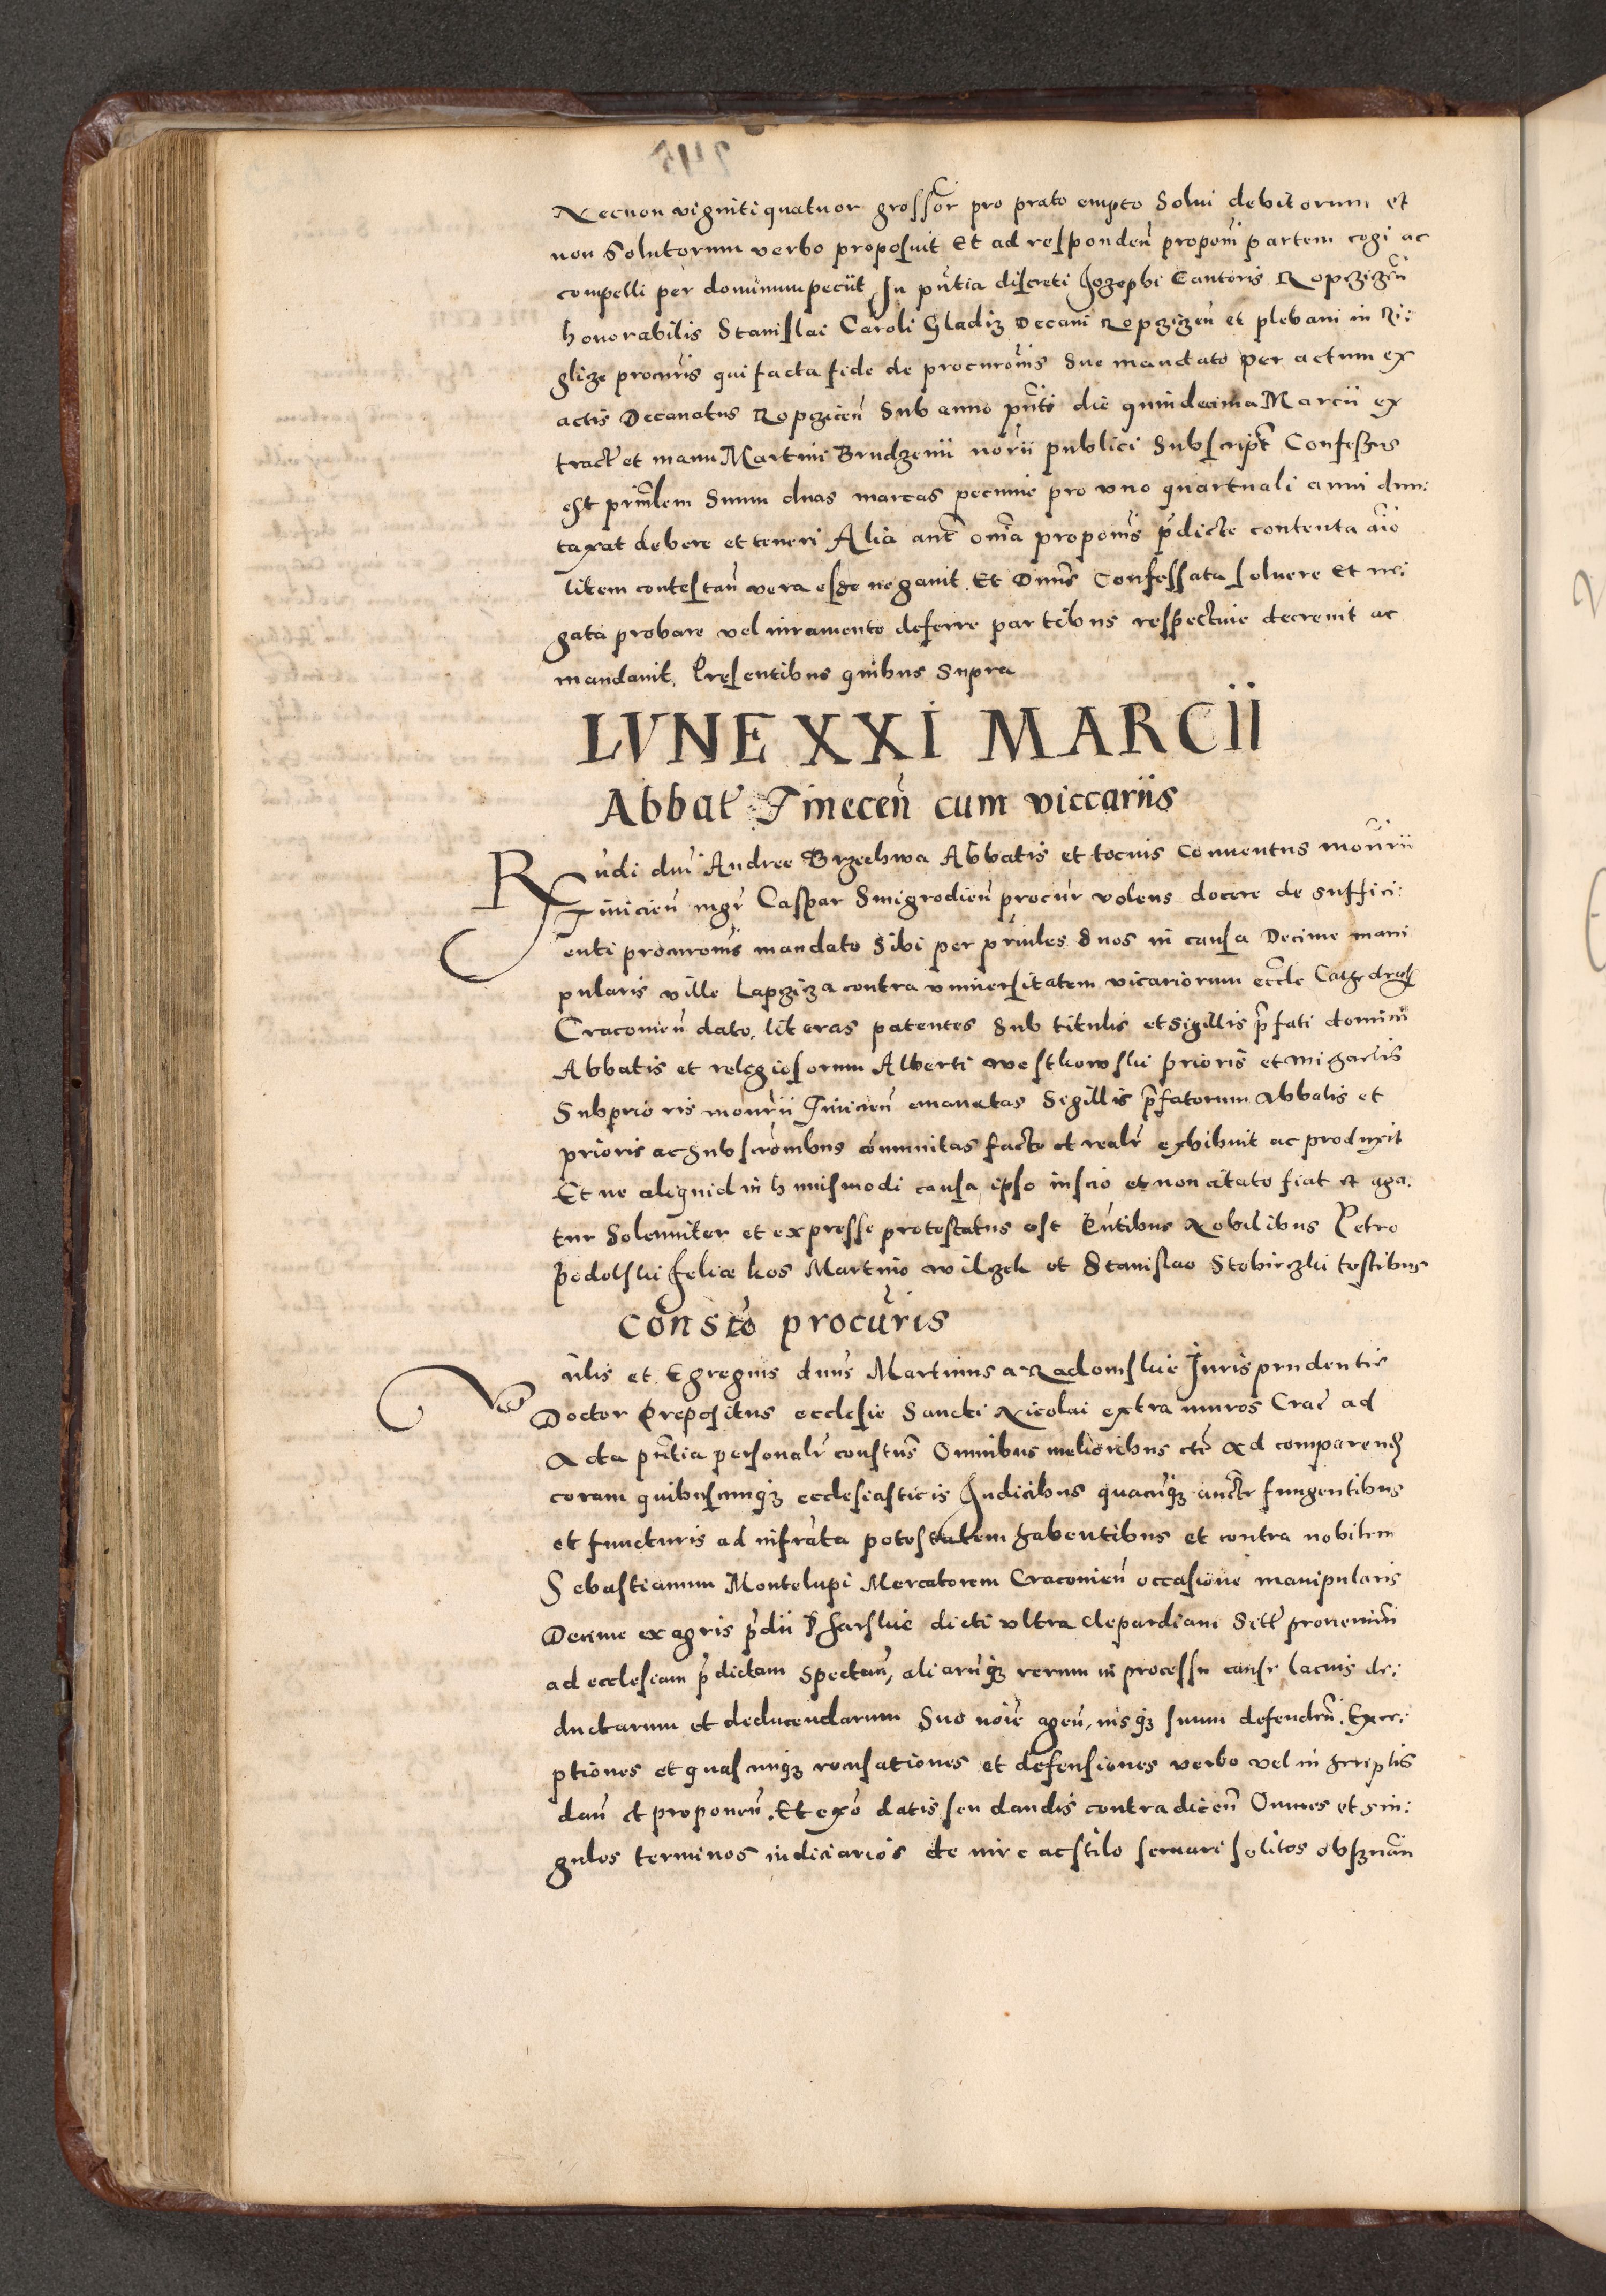 Necnon viginti quatuor grossor̄ pro prato empto Solui debitorum et
non Solutorum verbo proposuit Et ad responden̄ propoōni partem cogi ac
compelli per dominum peciit In pn̄tia discreti Jozephi Cantoris Ropczicen̄
honorabilis Stanislai Caroli Gladiz Decani Ropczicen̄ et plebani in Ri:
glize procur̄is qui facta fide de procuroīis sue mandato per actum ex
actis Decanatus Ropczicen̄ Sub anno pn̄ti die quindecima Marcii ex
tract̄ et manu Martini Brudzenii nōrii publici Subscript̄ Confessus
est prin̄lem Suum duas marcas pecunie pro vno quartuali anni dun:
taxat debere et teneri Alia aut̄ om̄ia propoōis p̄dicte contenta aīo
litem contestan̄ vera esse negauit. Et Dnūs Confessata soluere Et ne:
gata probare vel iuramento deferre partibus respectiue decreuit ac
mandauit. Presentibus quibus Supra
LVNE XXI MARCII
Abbat̄ Tinecen̄ cum viccariis
Rn̄di dnī Andree Brzechwa Abbatis et tocius Conuentus monr̄ii
Tinicien̄ mgr̄ Caspar Smigrodien̄ procur̄ volens docere de suffici:
enti procuroīs mandato Sibi per prin̄les Suos in causa Decime mani
pularis ville Lapczicza contra vniuersitatem vicariorum eccl̄e Cathedral̄
Cracouien̄ dato. literas patentes Sub titulis et Sigillis p̄fati domini
Abbatis et religiosorum Alberti Westkowski prioris et
Subprioris monr̄ii Tinicien̄ emanatas Sigillis p̄fatorum Abbatis et
prioris ac Subscrōnibus cōmunitas facto et realr̄ exhibuit ac produxit
Et ne aliquid in huiusmodi causa ipso inscio et non citato fiat et aga:
tur Solenniter et expresse protestatus est Pn̄tibus Nobilibus Petro
Podolski felice kos Martino Wilczek et Stanislao Stobieczki testibus
Constō procur̄is
Vn̄lis et Egregius dnūs Martinus a Radomskie Juris prudentie
Doctor Prepositus ecclesie Sancti Nicolai extra muros Crac̄ ad
Acta pn̄tia personalr̄ constus̄ Omnibus melioribus etc̄ Ad comparend̄
coram quibuscunq̨ ecclesiasticis Judicibus quacūq̨ auctt̄e fungentibus
et functuris ad infrāta potestatem habentibus et contra nobilem
Sebastianum Montelupi Mercatorem Cracouien̄ occasione manipularis
Decime ex agris p̄dii dicti vltra Clepardiam Sitt̄ prouenien̄
ad ecclesiam p̄dictam Spectan̄, aliarūq̨ rerum in processu cause lacius de:
ductarum et deducendarum Suo noīe agen̄, iusq̨ suum defenden̄. Exce:
ptiones et quascunq̨ recusationes et defensiones verbo vel in scriptis
dan̄ et proponen̄. Et ex̄o datis seu dandis contradicen̄ Omnes et sin:
gulos terminos iudiciarios de iure ac stilo seruari solitos obseruan̄